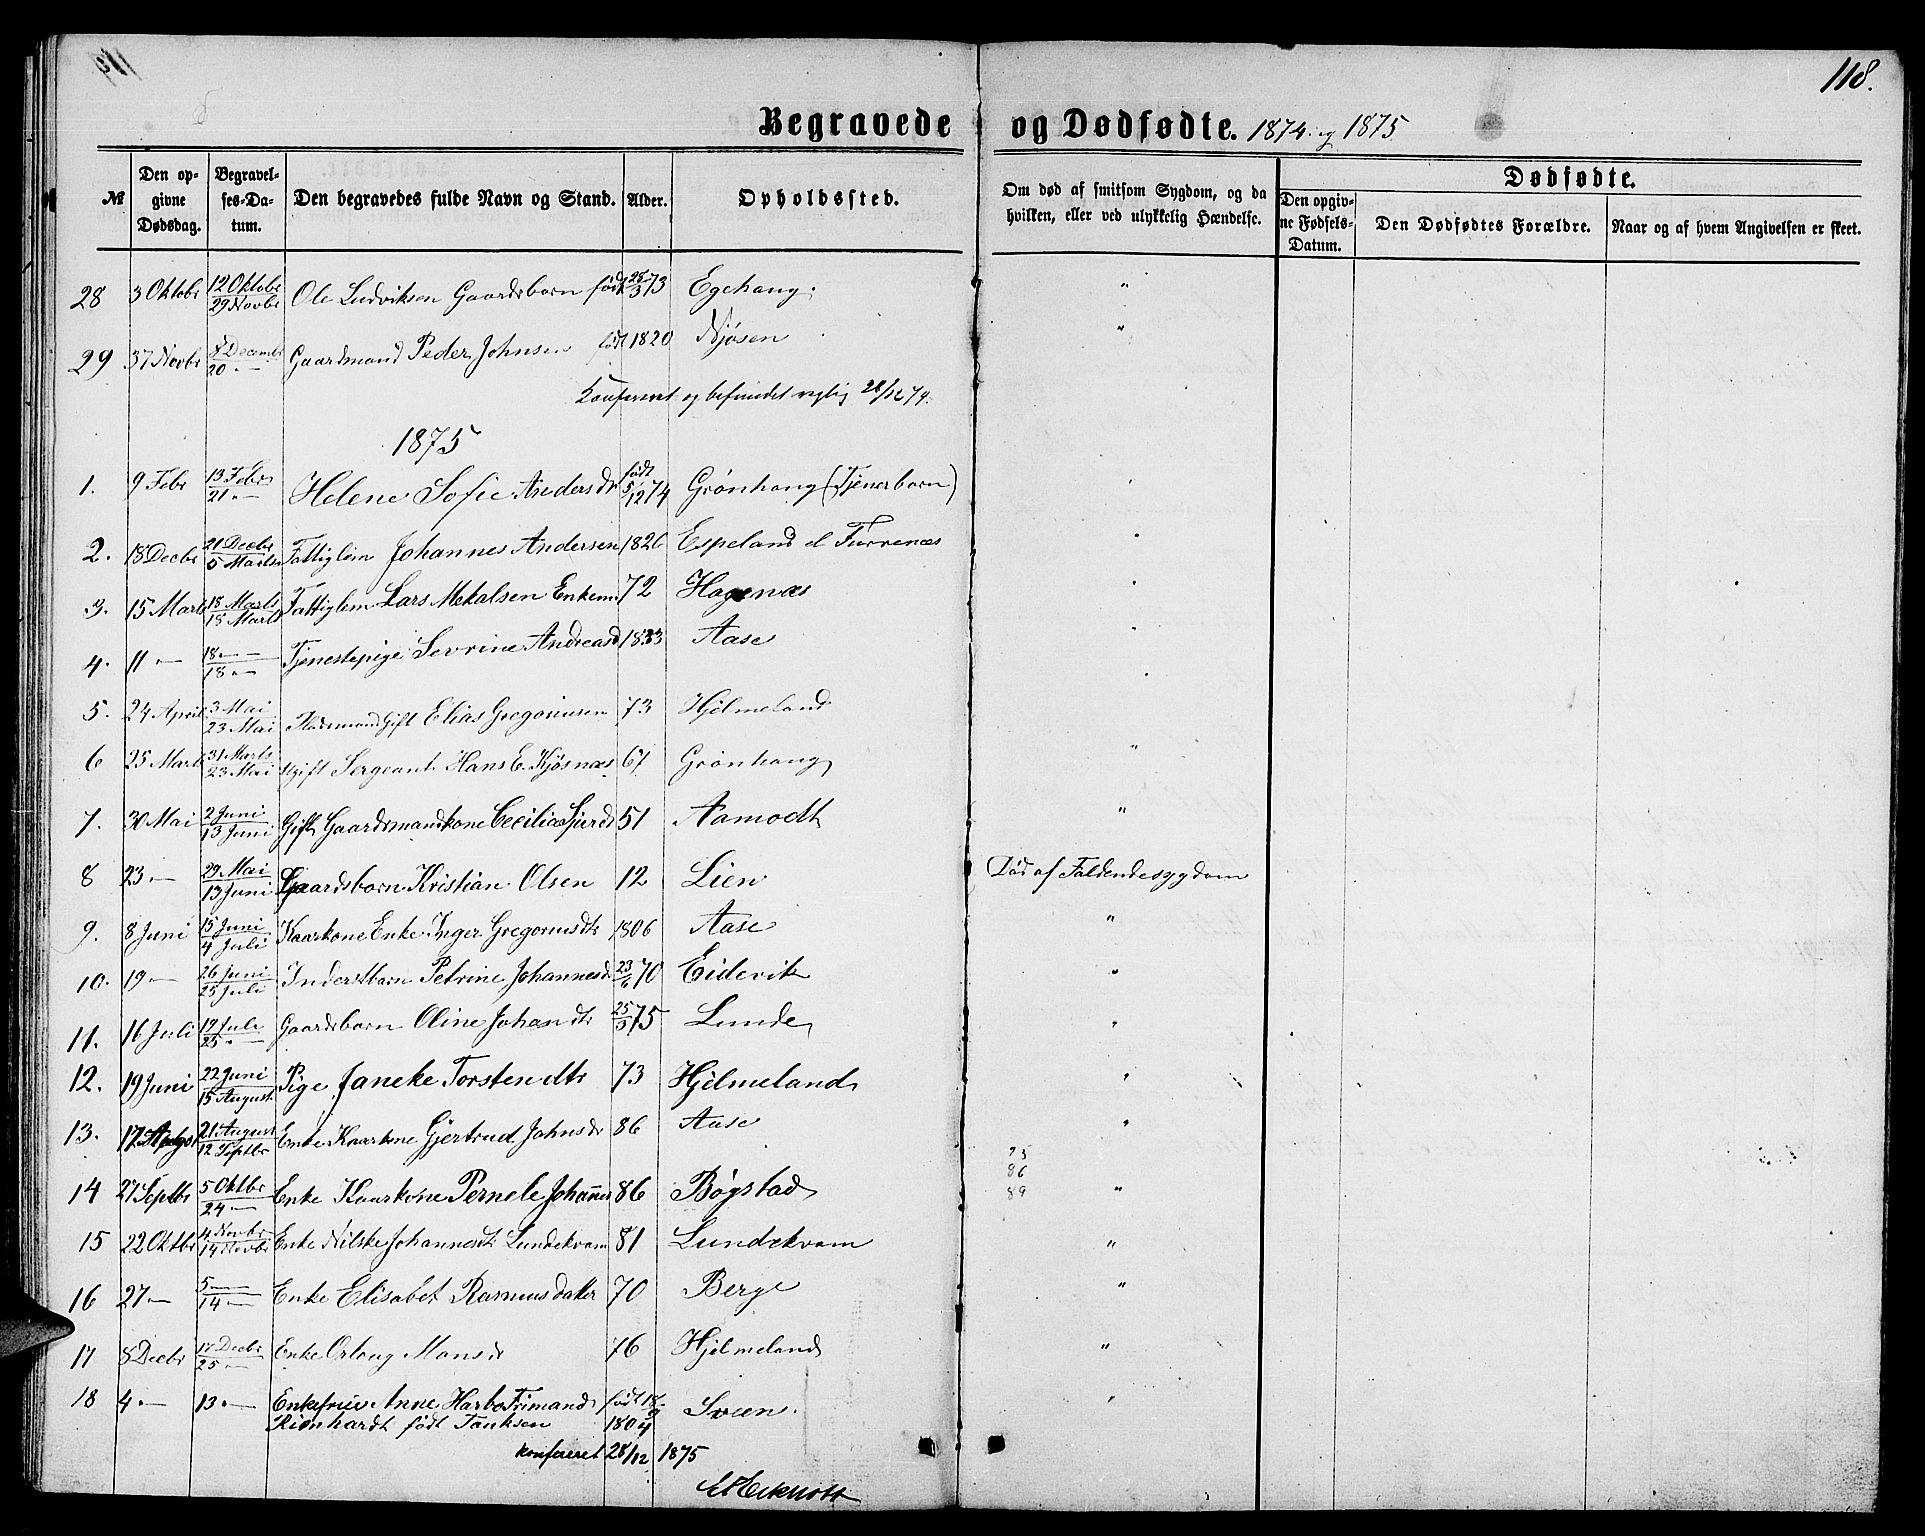 118.
Begravede og Dødfødte. 1874 og 1875
№
Den opgivne Dødsdag.
Begravelses-Datum.
Den begravedes fulde Navn og Stand.
Alder.
Opholdssted.
Om død af smitsom Sygdom, og da hvilken, eller ved ulykkelig Hændelse.
Dødfødte.
Den opgivne Fødsels-Datum.
Den Dødfødtes Forældre.
Naar og af hvem Angivelsen er skeet.
28 3 Oktobr 12 Oktobr 29 Novbr Ole Ludviksen Gaardsbarn født 28/3 73 Egehang. "
29 Novbr Decembr 20 Gaardmand Peder Johnsen født 1820 "
Konfereret og befundet rigtig 28/12 74.
1875
1. 9 Febr 13 Febr 21 — Helene Sofie Andersdr født 5/12 74 Grønhang (Tjenerbarn)
2. 18 Decbr 21 Decbr 5 Marts Fattiglem Johannes Andersen 1826 Espeland el Furrenæs "
3. 15 Marts 18 Marts 18 Marts Fattiglem Lars Mekalsen Enkem 72 Hagenæs "
4. 11 — 18 — 18 — Tjenestepige Sevrine Andreasd 1833 Aase "
5. 24 April 3 Mai 23 Mai Pladsmand Gift Elias Gregoriusen 73 Hjelmeland
6 25 Marts 31 Marts 23 Mai Ugift Sergeant Hans E. Kjøsnæs 67 Grønhang "
7. 30 Mai 2 Juni 13 Juni Gift Gaardmandskone Cecilia 51 Aamodt "
8 23 — 29 Mai 13 Juni Gaardsbarn Kristian Olsen 12 Lien Død af Faldendesygdom
9. 8 Juni 15 Juni 4 Juli Kaarkone Enke Inger Gregoriusdtr 1806 Aase "
10. 19 — 26 Juni 25 Juli Inderstbarn Petrine Johannesd 23/6 70 Eidevik "
11. 16 Juli 19 Juli 25 — Gaardsbarn Oline Johandtr 25/3 75 Lunde "
12. 19 Juni 22 Juni 15 August Pige Janeke Torstendtr 73 Hjelmeland "
13. 17 August 21 August 12 Septbr Enke Kaarkone Gjertrud Johnsdr 86 Aase "
75
86
89
14 27 Septbr 5 Oktbr 24 — Enke Kaarkone Pernele Johannes 86 Bøgstad "
15 22 Oktbr 4 Novbr 14 Novbr Enke Nilske Johannesdt Lundekvam 81 Lundekvam "
16 27 — 5 — 14 — Enke Elisabet Rasmusdatter 70 Berge "
17 8 Decbr 17 Decbr 25 — Enke Orlaug Monsdr 76 Hjelmeland "
18 4 — 13 — Enkefrue Anne Harbo Frimand født 18/9 Svæen. "
Rienhardt født Tanksen 1804
konfereret 28/12 1875